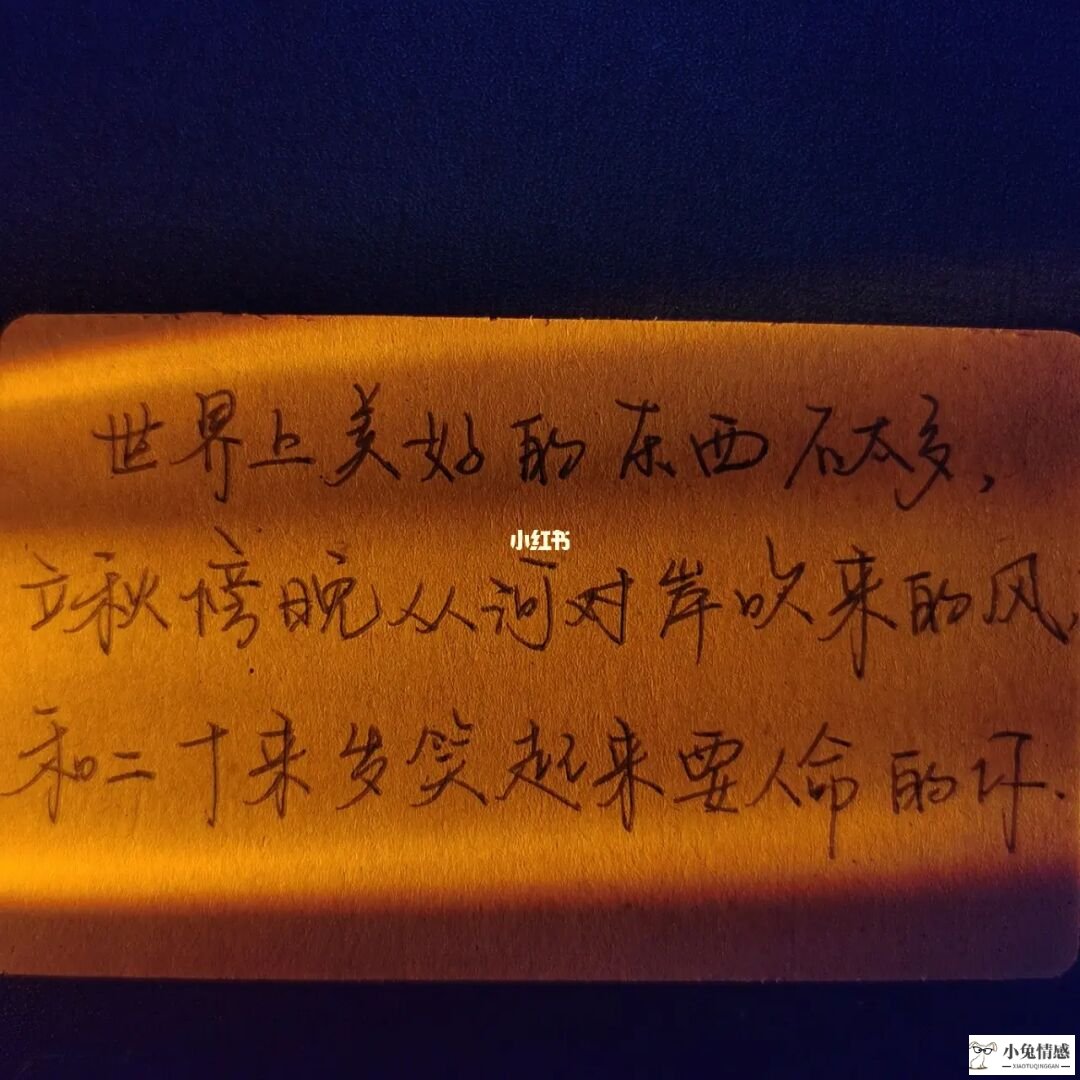 世界上美好的东西不太多,
小红书
立秋傍晚从河对岸吹来的风,
和二十来岁笑起来要人命的你.
小兔情感
XIAOTUQINGGAN